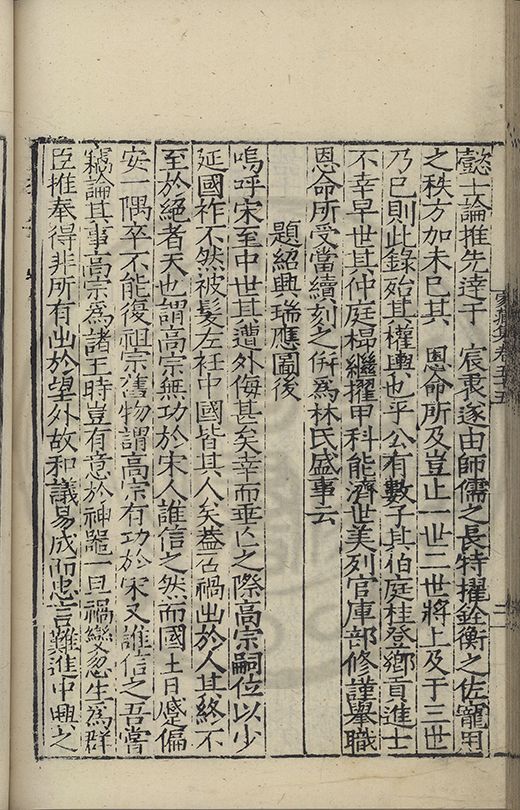 懿士論推先達于　宸衷遂由師儒之長特擢銓衡之佐寵用
之秩方加未已其　恩命所及豈止一世二世將上及于三世
乃已則此錄殆其權輿也乎公有數子其伯庭桂登鄉貢進士
不幸早世其仲庭㭿繼擢甲科能濟世美列官庫部修謹舉職
恩命所受當續刻之併爲林氏盛事云
題紹興瑞應圖後
嗚呼宋至中世其遭外侮甚矣幸而垂亡之際高宗嗣位以少
延國祚不然被髮左衽中國皆其人矣葢召禍出於人其終不
至於絕者天也謂高宗無功於宋人誰信之然而國土日蹙偏
安一隅卒不能復祖宗舊物謂高宗有功於宋又誰信之吾嘗
竊論其事高宗爲諸王時豈有意於神器一旦禍變忽生爲群
臣推奉得非所有出於望外故和議易成而忠言難進中興之
家藏集卷五十五
二